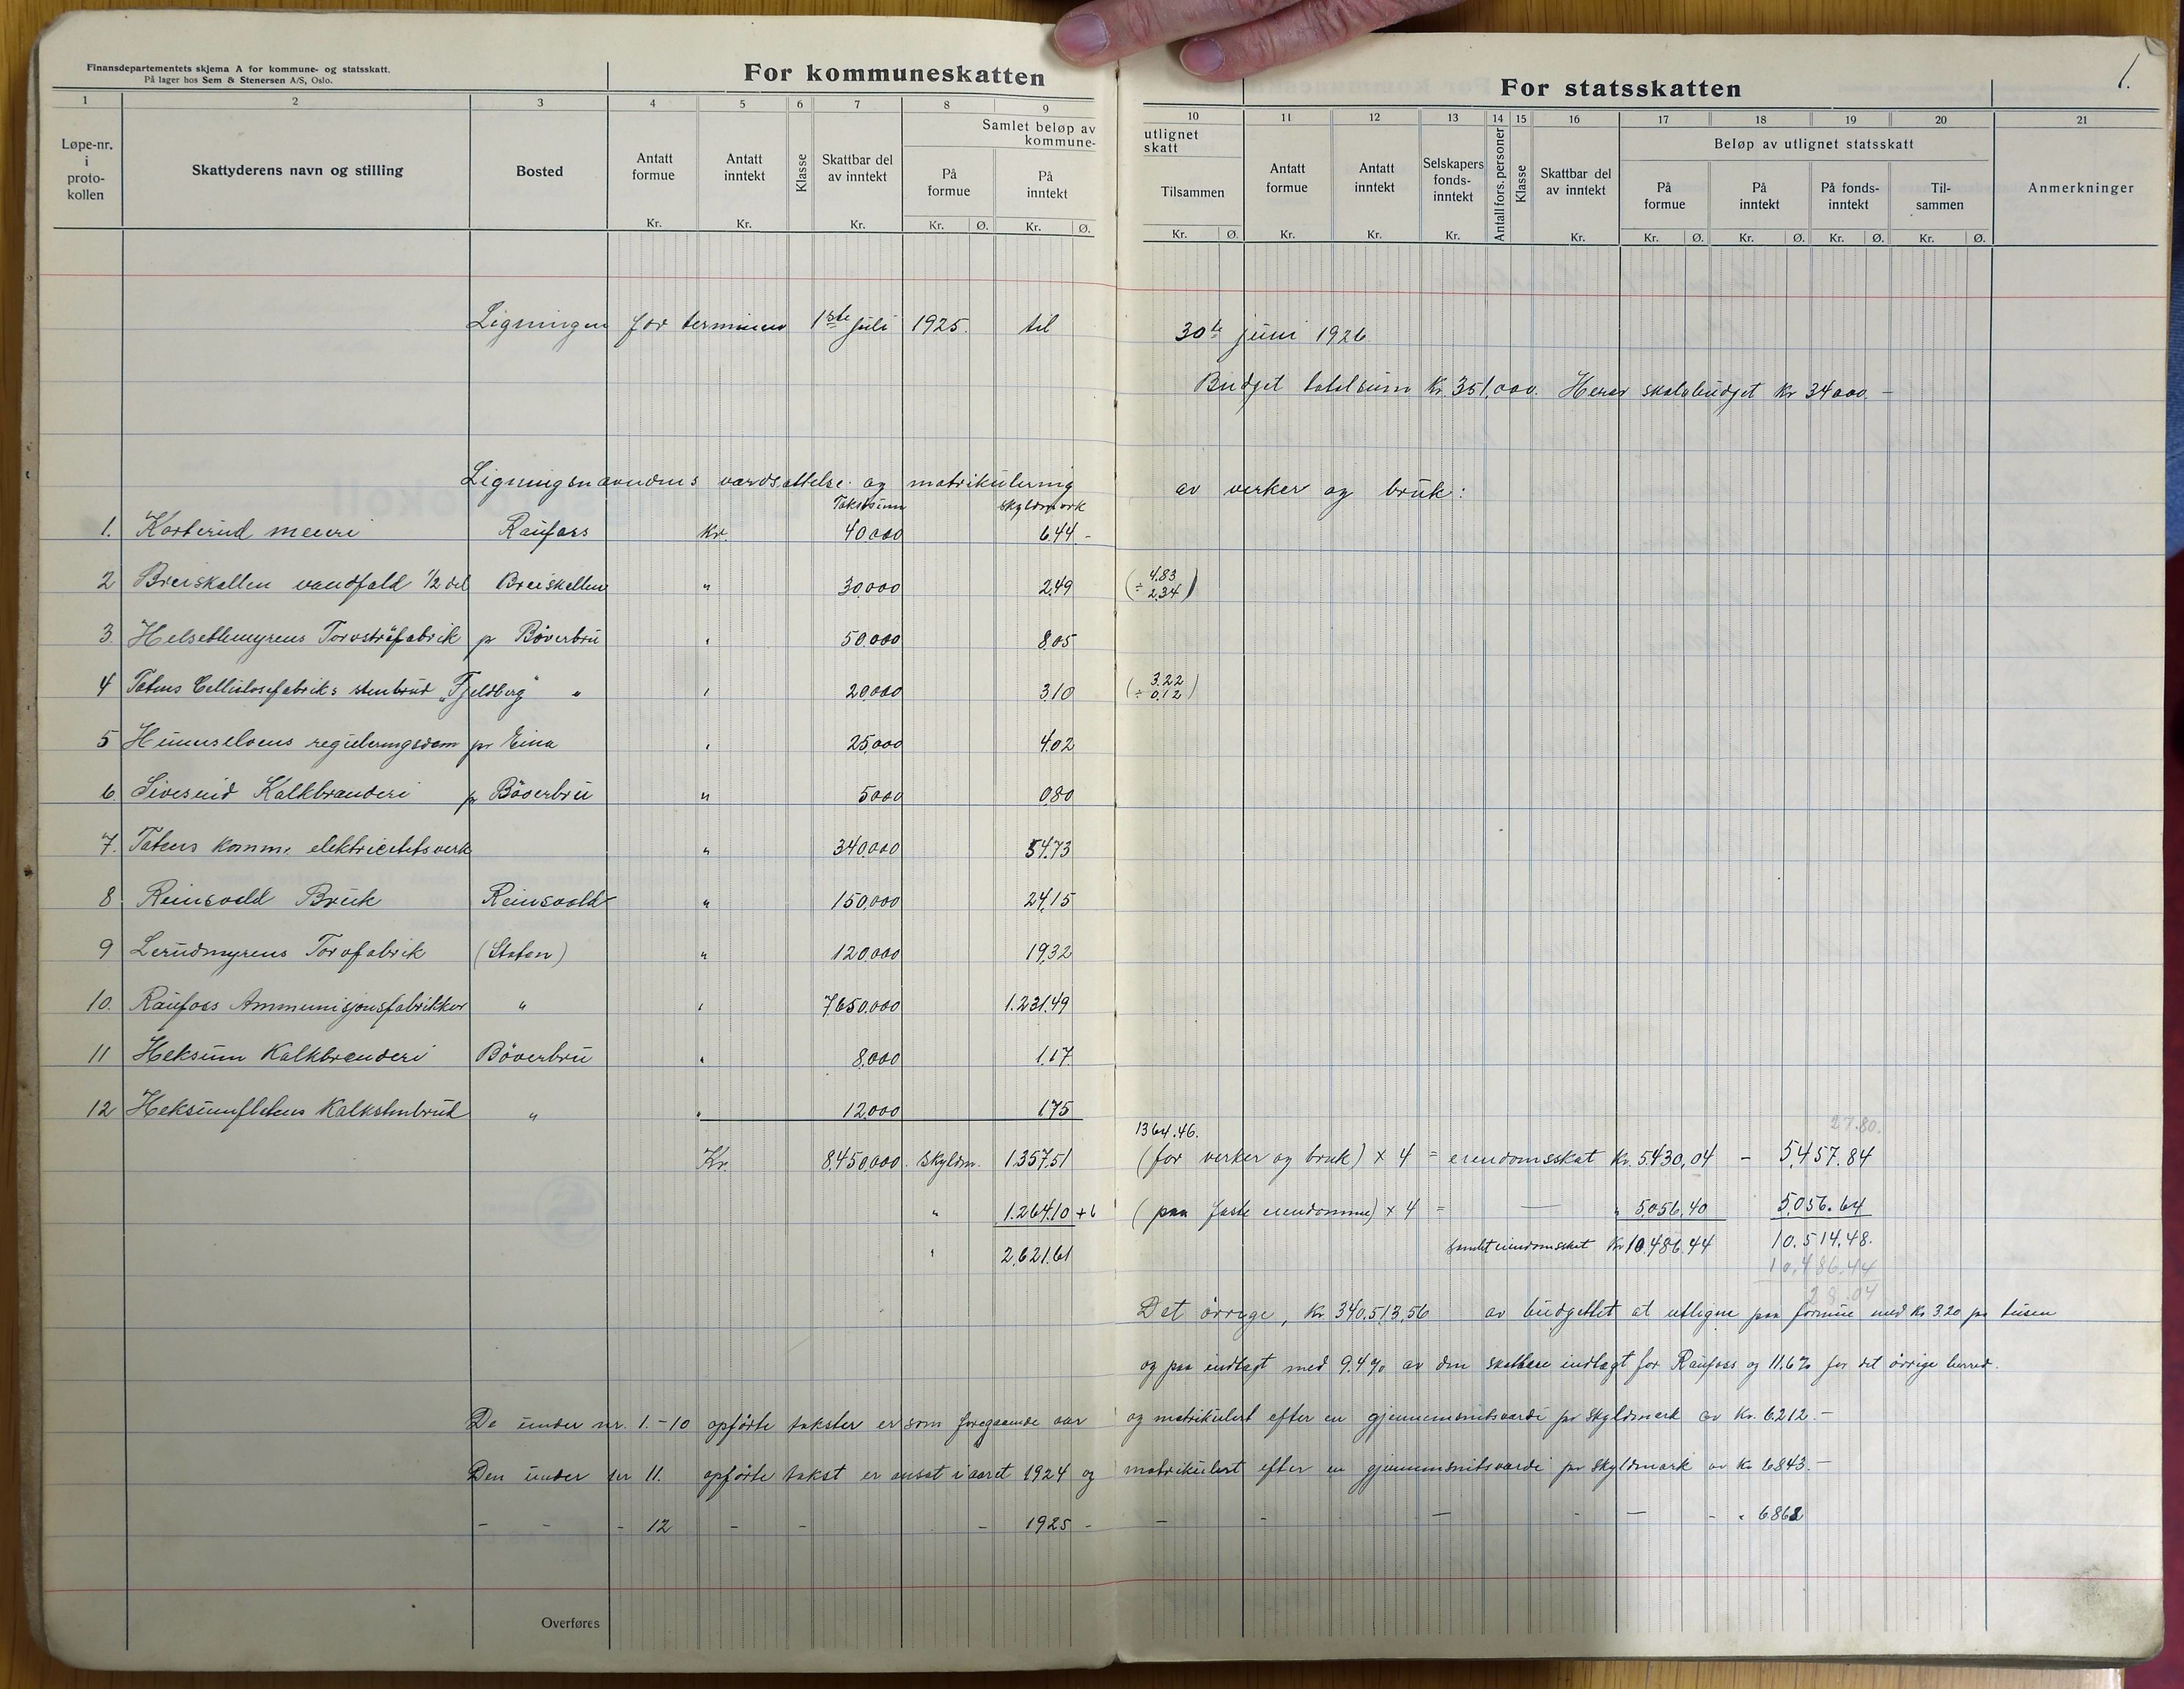 Finansdepartementets skjema A for kommune- og statsskatt.
På lager hos Sem & Stenersen A/S, Oslo.
For kommuneskatten
For statsskatten
1.
1 2 3 4 5 6 7 8 9 10 11 12 13 14 15 16 17 18 19 20 21
Løpe-nr. i proto-kollen
Skattyderens navn og stilling
Bosted
Antatt formue Kr.
Antatt inntekt Kr.
Klasse
Skattbar del av inntekt Kr.
Samlet beløp av kommune-
På formue Kr. Ø.
På inntekt Kr. Ø.
utlignet skatt
Tilsammen Kr. Ø.
Antatt formue Kr.
Antatt inntekt Kr.
Selskapers fonds-inntekt Kr.
Antall fors. personer
Klasse
Skattbar del av inntekt Kr.
Beløp av utlignet statsskatt
På formue Kr. Ø.
På inntekt Kr. Ø.
På fonds-inntekt Kr. Ø.
Til-sammen Kr. Ø.
Anmerkninger
Ligningen for terminen 1ste juli 1925 til 30te juni 1926
Budget totalsum Kr. 351,000. Herav skolebudget Kr 34000.-
Ligningsnævndens værdsættelse og matrikulering av verker og bruk:
Takstsum Skyldmark
1. Korterud meieri Raufoss Kr. 40000 6.44 -
2 Breiskallen vandfald 1/2 del Breiskallen " 30.000 2.49 (4.83 ÷ 2.34)
3. Helsethmyrens Torvströfabrik pr Böverbru " 50.000 8.05
4 Totens Cellulosefabriks stenbrud "Fjeldberg" " " 20.000 3.10 (3.22 ÷ 0.12)
5 Hunnselvens reguleringsdam pr Eina " 25.000 4.02
6. Sivesind Kalkbrænderi pr Böverbru " 5000 0.80
7. Totens komm. elektricitetsverk " 340.000 54.73
8 Reinsvold Bruk Reinsvold " 150.000 24.15
9 Lerudmyrens Torvfabrik (Staten) " 120.000 19.32
10. Raufoss Ammunisjonsfabrikker " " 7.650.000 1.231.49
11 Heksum Kalkbrenderi Böverbru " 8.000 1.17
12 Heksumflatens Kalkstenbrud " " 12.000 1.75
1364.46. 27.80.
Kr. 8.450.000. Skyldm. 1.357.51 (for verker og bruk) × 4 = eiendomsskat Kr. 5.430,04 - 5,457.84
" 1.264.10 + 6 (paa faste eiendomme) × 4 = — " 5.056,40 5,056.64
" 2.621.61 samlet eiendomsskat Kr 10.486.44 10.514,48.
10.486.44
28.04
Det övrige, Kr. 340.513,56 av budgettet at utligne paa formue med Kr 3.20 pr tusen
og paa indtægt med 9.4% av den skatbare indtægt for Raufoss og 11.6% for det övrige herred.
De under nr. 1.-10 opförte takster er som foregaaende aar og matrikulert efter en gjennemsnitsværdi pr skyldmark av Kr. 6212.-
Den under nr 11. opförte takst er ansat i aaret 1924 og matrikulert efter en gjennemsnitsværdi pr skyldmark av Kr 6843.-
- - - 12 - - - 1925 - - - - - - - " 6.862
Overføres